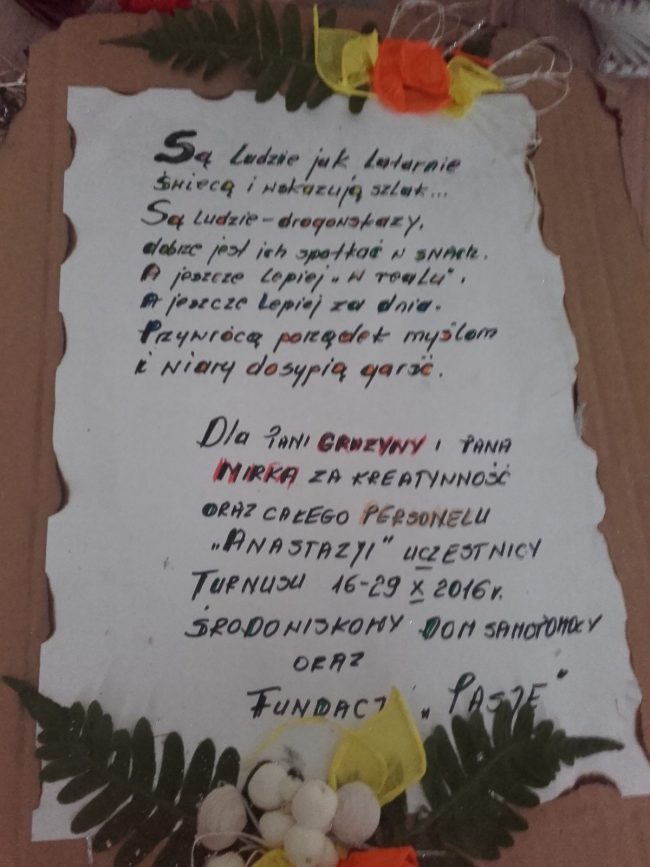 Są ludzie jak latarnie
świecą i wskazują szlak...
Są ludzie - drogowskazy,
dobrze jest ich spotkać w snach.
A jeszcze lepiej „w realu".
A jeszcze lepiej za dnia.
Przywrócą porządek myślom
i wiary dosypią garść.
Dla Pani GRAŻYNY i PANA
MIRKA ZA KREATYWNOŚĆ
ORAZ CAŁEGO PERSONELU
„ANASTAZYI" UCZESTNICY
TURNUSU 16-29 X 2016r.
ŚRODOWISKOWY DOM SAMOPOMOCY
ORAZ
„PASJE"